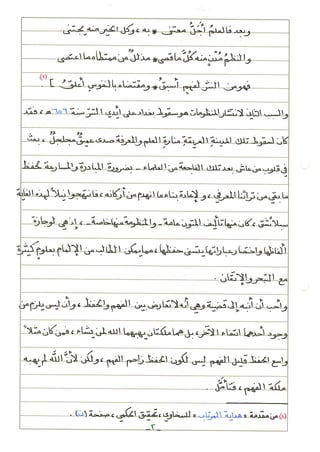 وبعد فالعلم أجل مقتنى * به، وكل الخير منه يجتنى
والنظم مدنٍ منه كل ما قصي * مذلل من ممتطاه ما اعتصى
فهو من النثر لفهم أسبق * ومقتضاه بالنفوس أعلق ]. (١)
والسبب الثاني لانتشار المنظومات هو سقوط بغداد على أيدي التتر سنة ٦٥٦ هـ، فقد
كان لسقوط تلك المدينة العريقة منارة العلم والمعرفة صدى عميق مجلجل، بعث
في قلوب من عاش بعد تلك الفاجعة من العلماء - بضرورة المبادرة والمسارعة لحفظ
ما بقي من تراثنا المعرفي، ولإعادة بناء ما انهدم من أركانه، فانتهجوا نيلاً لهذه الغاية
سبلاً شتى، كان منها تأليف المتون عامة - والمنظومة منها خاصة -، إذ هي لوجازة
ألفاظها واختصار عباراتها يتسنى حفظها، مما يمكن الطالب من الإلمام بعلوم كثيرة
مع التبحر والإتقان.
وأحب أن أنبه إلى قضية وهي أنه لا تعارض بين الفهم والحفظ، وأن ليس يلزم من
وجود أحدهما انتفاء الآخر، بل هما ملكتان يهبهما الله لمن يشاء، فمن كان مثلاً
واسع الحفظ قليل الفهم ليس لكون الحفظ زاحم الفهم، ولكن لأن الله لم يهبه
ملكة الفهم، فتأمل.
(١) من مقدمة « هداية المرتاب » للسخاوي، تحقيق الحكمي، صفحة (ن).
-٢-